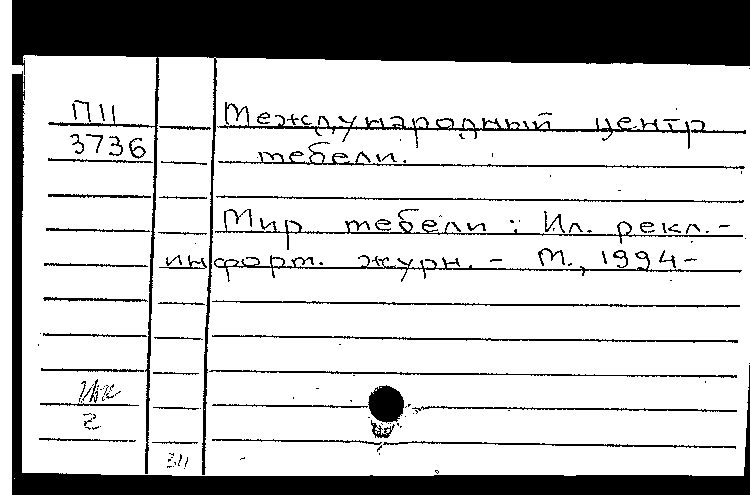 П11
3736
Международный центр
мебели.
Мир мебели : Ил. рекл.-
информ. журн. - М., 1994-
2